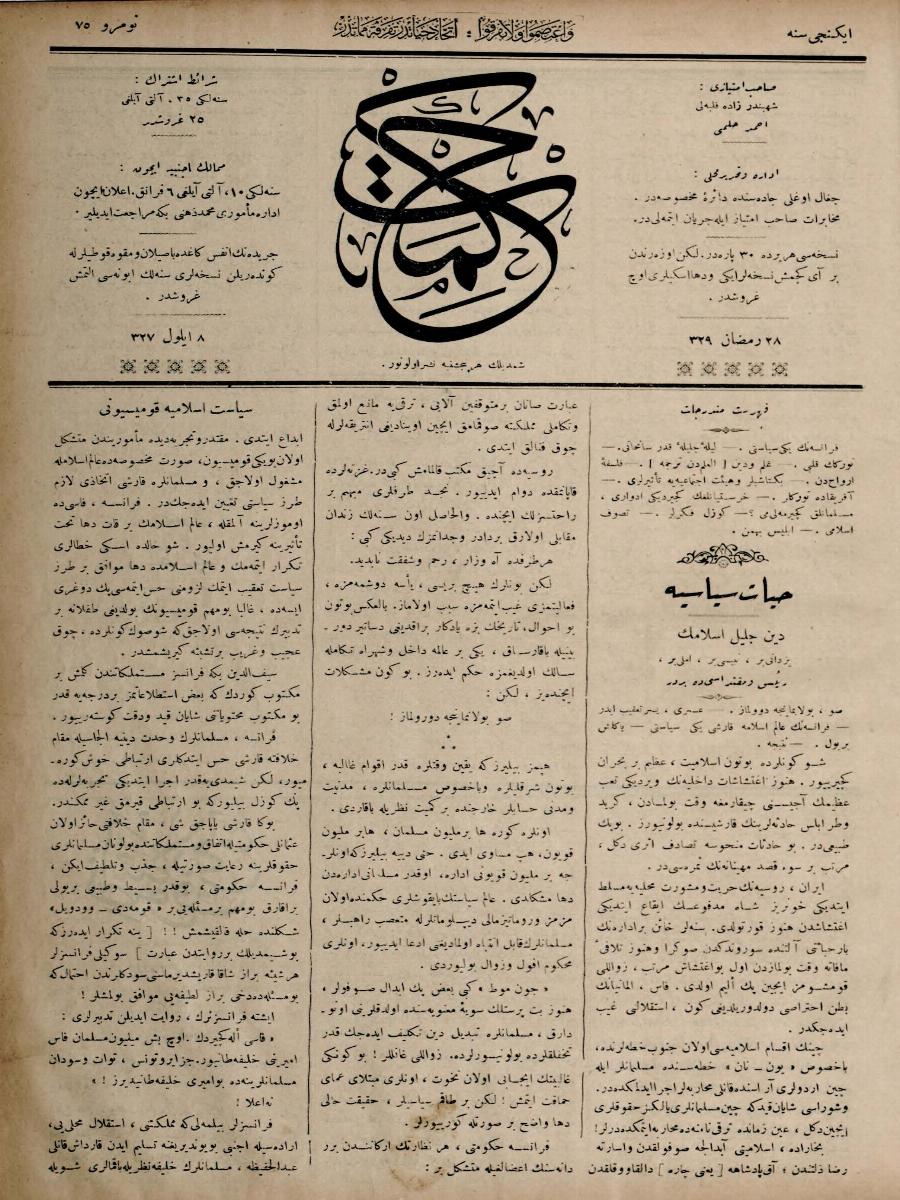 ایكنجی سنه
واعتصموا ولا تفرقوا : اتحاد حیاتدر تفرقه مماتدر
نومرو ٧٥
صاحب امتیازی :
شهبندر زاده فلبه‌لی
احمد حلمی
اداره و تحریر محلی :
جغال اوغلی جاده‌سنده دائرهٔ مخصوصه‌در .
مخابرات صاحب امتیاز ایله جریان ایتمه‌لی‌در.
نسخه‌سی هر یرده ٣٠ پاره‌در. لكن اوزه‌رندن
بر آی كچمش نسخه‌لر ایكی و دها اسكیلری اوچ
غروشدر .
٢٨ رمضان ٣٢٩
حكمت
شمدیلك هر پنجشنبه نشر اولونور .
شرائط اشتراك :
سنه‌لكی ٣٥ ، آلتی آیلغی
٢٥ غروشدر
ممالك اجنبیه ایچون :
سنه‌لكی ١٠ ، آلتی آیلغی ٦ فرانق . اعلان ایچون
اداره مأموری محمد ذهنی بكه مراجعت ایدیلیر .
جریده‌نك انفس كاغده باصیلان و مقوه قوطیلرله
كونده‌ریلن نسخه‌لری سنه‌لك ابونه‌سی التمش
غروشدر .
٨ ایلول ٣٢٧
فهرست مندرجات
فرانسه‌نك یكی سیاستی . — لیلهٔ جلیلهٔ قدر سانحاتی . —
توركك قلبی . — علم و دین [ العلم‌دن ترجمه ] . — فلسفهٔ
ارواح‌دن . — بكتاشیلر و هیئت اجتماعیه‌یه تأثیرلری . —
آفریقاده توركلر . — خرستیانلغك كچیردیكی ادواری ،
مسلمانلق كچیرمه‌لی‌می ؟ — كوزل فكرلر . — تصوف
اسلامی . — ابلیس بهمن .
حیات سیاسیه
دین جلیل اسلامك
یزدانی بر ، نبیسی بر ، املی بر ،
رئیس و مقتداسی ده بردر
صو ، بولانماینجه دوورلماز . — عسری ، یسر تعقیب ایدر
— فرانسه‌نك عالم اسلامه قارشی یكی سیاستی — باكلش
بر یول . — نتیجه .
شو كونلرده بوتون اسلامیت ، عظیم بر بحران
كچیرییور . هنوز اغتشاشات داخلیه‌نك ویردیكی تعب
عظیمك آجیسنی چیقارمغه وقت بولمادن ، كرید
و طرابلس حادثه‌لرینك قارشیسنده بولونیورز . بوپك
طبیعی‌در . بو حادثات منحوسه تصادف اثری دكل ،
مرتب بر سوء قصد مهینانه‌نك ثمره‌سی‌در .
ایران ، روسیه‌نك حریت و مشورت محلیه‌یه مسلط
ایتدیكی خونریز شاه مدفوعك ایقاع ایتدیكی
اغتشاشدن هنوز قورتولدی . سنه‌لر خائن براداره‌نك
بارحباتی آلتنده سوروندكدن صوكرا وهنوز تلافیٔ
مافاته وقت بولمازدن اول بواغتشاش مرتب ، زواللی
قومشومز ایچین پك ألیم اولدی . فاس ، المانیانك
بطن احتراصی دولدوریلدیغی كون ، استقلالنی غیب
ایده‌جكدر .
چینك اقسام اسلامیه‌سی اولان جنوب خطه‌لرنده ،
باخصوص « یون - نان » خطه‌سنده مسلمانلر ایله
چین اردولری آراسنده قانلی محاربه‌لر اجرا ایدلمكده‌در.
وشوراسی شایان قیدكه چین مسلمانلری یالكز حقوقلری
ایچین دكل ، عین زمانده ترقی نامنه‌ده محاربه ایتمكده‌درلر !
بخاراده ، اسلامیتی آبدالجه صوفولقدن و اسارته
رضا ذلتندن ؛ آق پادشاهه [ یعنی چاره ] دالقاووقلقدن
عبارت صانان بر متوقفین آلایی ، ترقی‌یه مانع اولمق
و تكاملی مملكتنه صوقمامق ایچین اوینادیغی انتریقه‌لرله
چوق فنالق ایتدی .
روسیه‌ده آچیق مكتب قالمامش كبی‌در. غزته‌لرده
قاپانمقده دوام ایدییور . نجد طرفلری مبهم بر
راحتسزلك ایچنده . والحاصل اون سنه‌لك زندان
مقابلی اولارق برادر وجدانمزك دیدیكی كبی :
هر طرفده آه وزار ، رحم وشفقت نابدید.
لكن بونلرك هیچ بریسی ، یأسه دوشمه‌مزه ،
فعالیتمزی غیب ایتمه‌مزه سبب اولاماز. بالعكس بوتون
بو احوال ، تاریخك بزه یادكار براقدیغی دساتیر دور-
بینیله باقارساق ، یكی بر عالمه داخل وشهراه تكامله
سالك اولدیغمزه حكم ایده‌رز . بو كون مشكلات
ایچنده‌یز ، لكن :
صو بولانماینجه دوورولماز :
هیمز بیلیرزكه یقین وقتلره قدر اقوام غالبه ،
بوتون شرقلیلره وباخصوص مسلمانلره ، مدنیت
ومدنی حسابلر خارجنده بر كمیت نظریله باقاردی .
اونلره كوره ها بر ملیون مسلمان ، هابر ملیون
قویون، هپ مساوی ایدی . حتی دییه بیلیرزكه اونلر-
جه بر ملیون قویونی اداره، اوقدر مسلمانی اداره‌دن
دها مشكلدی . عالم سیاستك بایقوشلری حكمنده‌اولان
مزمن روماتیزمالی دیپلوماتلرله متعصب راهبلر ،
مسلمانلرك قابل انتباه اولمادیغنی ادعا ایدییور ، اونلری
محكوم افول وزوال بولیوردی .
« جون موط » كبی بعض پك ابدال صوفولر ،
هنوز بت پرستلك سویهٔ معنویه‌سنده اولدقلرینی اونو-
دارق ، مسلمانلره تبدیل دین تكلیف ایده‌جك قدر
تحفلقلرده بولونیورلرده. زواللی غافللر ! بو كونكی
غالبیتك ایجابی اولان نخوت ، اونلری مبتلای عمای
حماقت ایتمش ! لكن بر طاقم سیاسیلر ، حقیقت حالی
دها واضح بر صورتله كورییورلر .
فرانسه حكومتی ، هر نظارتك اركانندن برر
دانه‌سنك اعضالغیله متشكل بر :
سیاست اسلامیه قومیسیونی
ابداع ایتدی . مقتدر و تجربه‌دیده مأموریندن متشكل
اولان بویكی قومیسیون، صورت مخصوصه‌ده عالم اسلامله
مشغول اولاجق ، و مسلمانلره قارشی اتخاذی لازم
طرز سیاستی تعیین ایده‌جك‌در. فرانسه ، فاسی ده
اوموزلرینه آلمقله ، عالم اسلامك بر قات دها تحت
تأثیرینه كیرمش اولیور. شو حالده اسكی خطالری
تكرار ایتمه‌مك و عالم اسلامده دها موافق بر طرز
سیاست تعقیب ایتمك لزومنی حس ایتمه‌سی پك دوغری
ایسه‌ده ، غالبا بومهم قومیسیونك بولدیغی طفلانه بر
تدبیرك نتیجه‌سی اولاجق‌كه شوصوك كونلرده ، چوق
عجیب وغریب بر تشبثه كیریشمشدر .
سیف‌الدین بكه فرانسز مستملكاتندن كلمش بر
مكتوب كوردك كه بعض استطلاعاتمز بر درجه‌یه قدر
بو مكتوب محتویاتنی شایان قید ودقت كوستردیور .
فرانسه ، مسلمانلرك وحدت دینیه الجاسیله مقام
خلافته قارشی حس ایتدكلری ارتباطی خوش كوره-
میور، لكن شیمدی‌یه قدر اجرا ایتدیكی تجربه‌لرله‌ده
پك كوزل بیلیوركه بو ارتباطی قیرمق غیر ممكندر.
بوكا قارشی یاپاجق شی ، مقام خلافتی حائز اولان
عثمانلی حكومتیله اتفاق و مستملكاتنده بولونان مسلمانلری
حقوقلرینه رعایت صورتیله ، جذب وتلطیف‌ایكن ،
فرانسه حكومتی ، بوقدر بسیط وطبیعی بریولی
براقارق بومهم بر مسئله‌یی بر « قومه‌دی — وودویل »
شكلنده حله قالقیشمش !! [ ینه تكرار ایده‌رزكه
بوشیمدیلك بر روایتدن عبارت ] سوكیلی فرانسزلر
هر شیئه براز شاقا قاریشدیرماسنی سودكلرندن احتمال‌كه
بومسئله‌ده‌دخی براز لطیفه‌یی موافق بولمشلر !
ایشته فرانسزلرك ، روایت ایدیلن تدبیرلری :
« فاسی أله كچیردك. اوچ بش میلیون مسلمان فاس
امیرینی خلیفه طانیور. جزایر و تونس ، توات وسودان
مسلمانلرینه‌ده بوامیری خلیفه طانیدیرز ! »
نه‌اعلا !
فرانسزلر بیلمه‌لی‌كه مملكتنی ، استقلال محلی‌یی ،
اراده‌سیله اجنبی بویوندیریغنه تسلیم ایدن قارداش قاتلی
عبدالحفیظه ، مسلمانلرك خلیفه نظریله باقمالری شویله